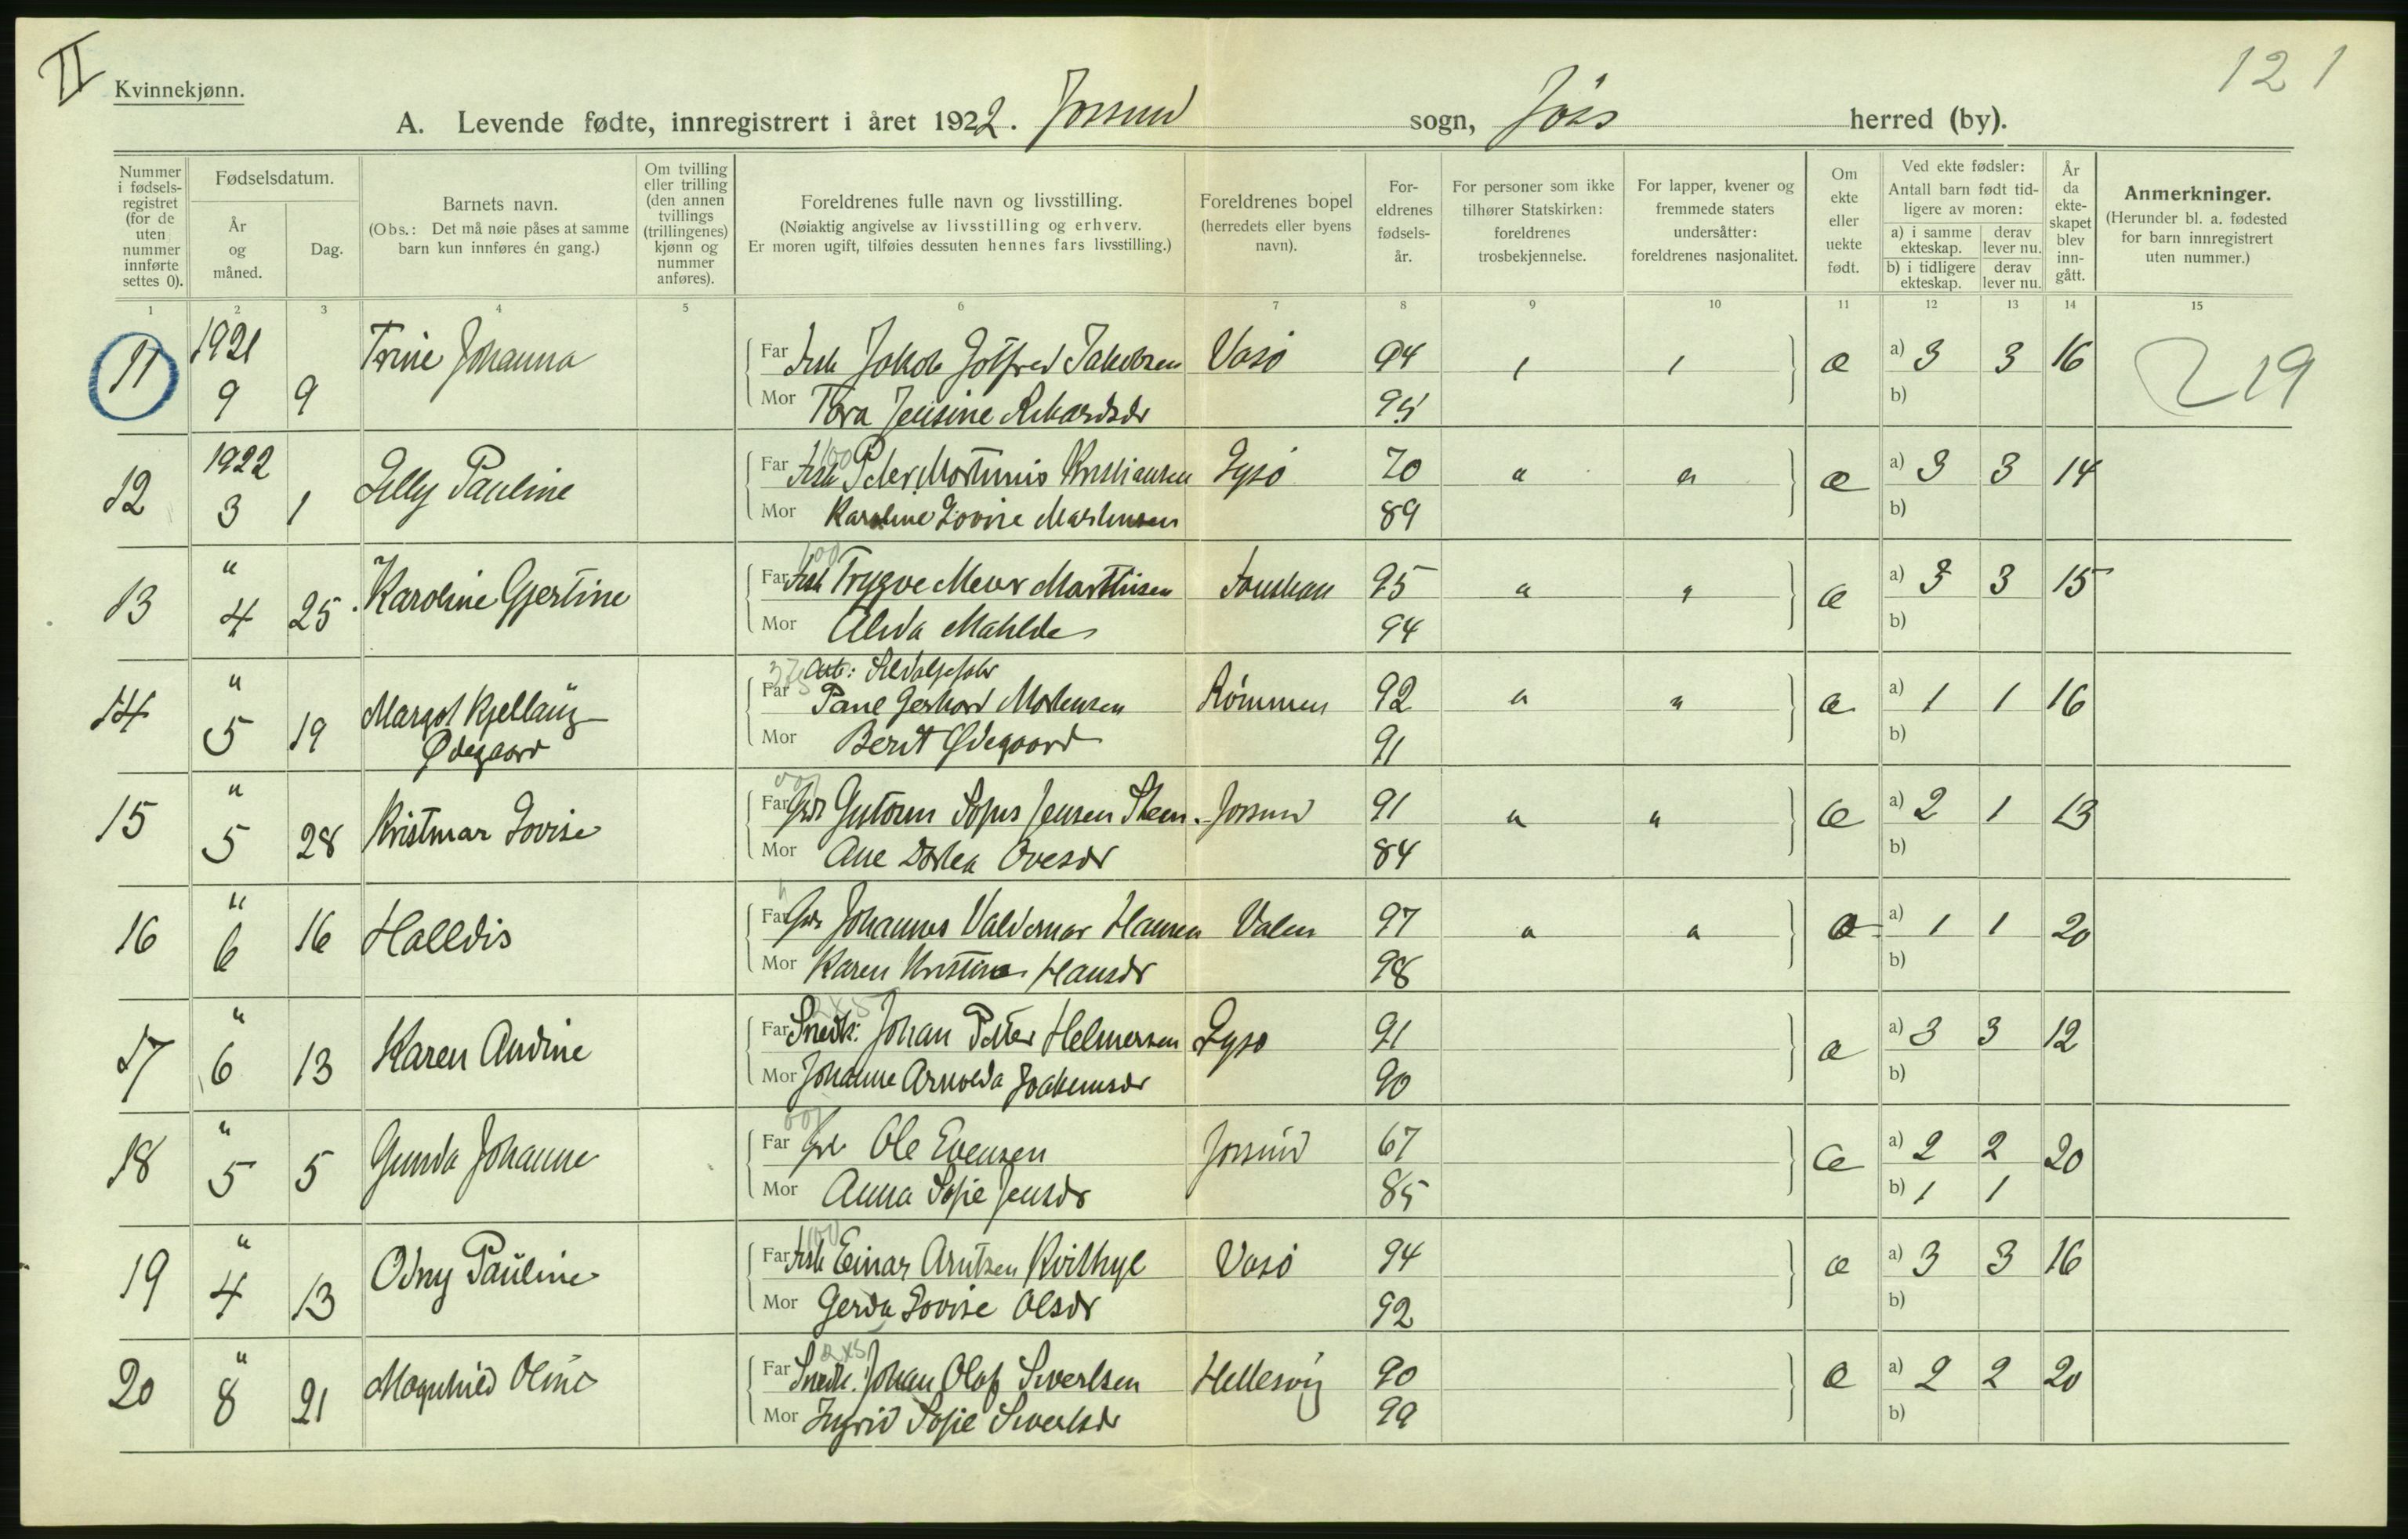 II
Kvinnekjønn.
121
A. Levende fødte, innregistrert i året 1922. Jossund sogn, Jøss herred (by).
Nummer i fødsels-registret (for de uten nummer innførte settes 0).
Fødselsdatum.
År og måned.
Dag.
Barnets navn.
(Obs.: Det må nøie påses at samme barn kun innføres én gang.)
Om tvilling eller trilling (den annen tvillings (trillingenes) kjønn og nummer anføres).
Foreldrenes fulle navn og livsstilling.
(Nøiaktig angivelse av livsstilling og erhverv.
Er moren ugift, tilføies dessuten hennes fars livsstilling.)
Foreldrenes bopel
(herredets eller byens navn).
For-eldrenes fødsels-år.
For personer som ikke tilhører Statskirken: foreldrenes trosbekjennelse.
For lapper, kvener og fremmede staters undersåtter: foreldrenes nasjonalitet.
Om ekte eller uekte født.
Ved ekte fødsler:
Antall barn født tidligere av moren:
a) i samme ekteskap. derav lever nu.
b) i tidligere ekteskap. derav lever nu.
År da ekte-skapet blev inn-gått.
Anmerkninger.
(Herunder bl. a. fødested for barn innregistrert uten nummer.)
1 2 3 4 5 6 7 8 9 10 11 12 13 14 15
11 1921 9 9 Trine Johanna
Far Fisk Jakob Gotfred Jakobsen Vasø 94 æ a) 3 3 16 219
Mor Tora Jensine Rikardsdr 94 b)
12 1922 3 1 Lilly Pauline
Far Fisk Peder Mortinius Kristiansen Lysø 70 " " æ a) 3 3 14
Mor Karoline Lovise Martinsen 89 b)
13 " 4 25 Karoline Gjertine
Far Fisk Trygve Meier Martinsen 95 " " æ a) 3 3 15
Mor Alida Matilde 94 b)
14 " 5 19 Margot Kjellaug Ødegaard
Far Paul Gerhard Mortensen Rømmen 92 " " æ a) 1 1 16
Mor Berit Ødegaard 91 b)
15 " 5 28 Kristmar Lovise
Far Gbr Gutorm Sofus Jensen Steen Jossund 91 " " æ a) 2 1 13
Mor Ane Dortea Ovesdr 84 b)
16 " 6 16 Halldis
Far Gbr Johannes Valdemar Hansen Valen 97 " " æ a) 1 1 20
Mor Karen Kristine Hansdr 98 b)
17 " 6 13 Karen Andine
Far Snedk. Johan Peter Helmersen Lysø 91 æ a) 3 3 12
Mor Johanne Arnolda Joakimsdr 90 b)
18 " 5 5 Gunda Johanne
Far Gbr Ole Evensen Jossund 67 æ a) 2 2 20
Mor Anna Sofie Jensdr 85 b) 1 1
19 " 4 13 Odny Pauline
Far Fisk Einar Arntzen Kvithyl Vasø 94 æ a) 3 3 16
Mor Gerda Lovise Olsdr 92 b)
20 " 8 21 Magnhild Oline
Far Snedk. Johan Olaf Sivertsen Hellesvig 90 æ a) 2 2 20
Mor Ingrid Sofie Sivertsdr 99 b)